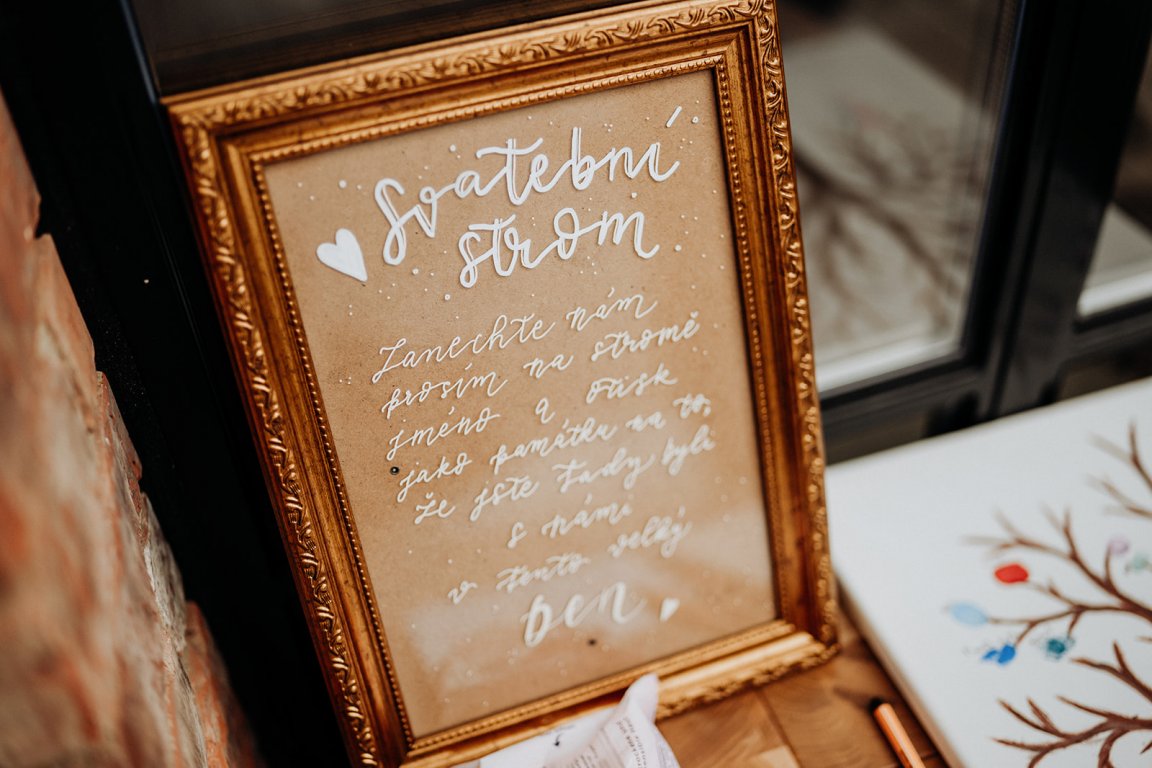 Svatební
strom
Zanechte nám
prosím na stromě
jméno a otisk
jako památku na to,
že jste tady byli
s námi
v tento velký
Den